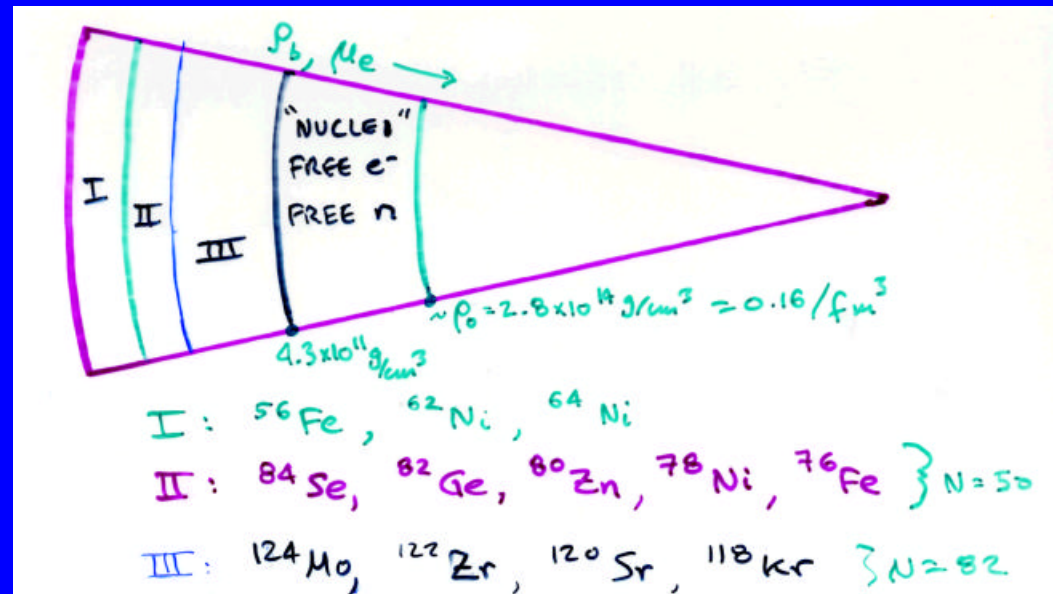 ρb, μe →
"NUCLEI"
FREE e⁻
FREE n
I
II
III
~ρ₀ = 2.8x10¹⁴ g/cm³ = 0.16/fm³
4.3x10¹¹ g/cm³
I: ⁵⁶Fe, ⁶²Ni, ⁶⁴Ni
II: ⁸⁴Se, ⁸²Ge, ⁸⁰Zn, ⁷⁸Ni, ⁷⁶Fe } N=50
III: ¹²⁴Mo, ¹²²Zr, ¹²⁰Sr, ¹¹⁸Kr } N=82